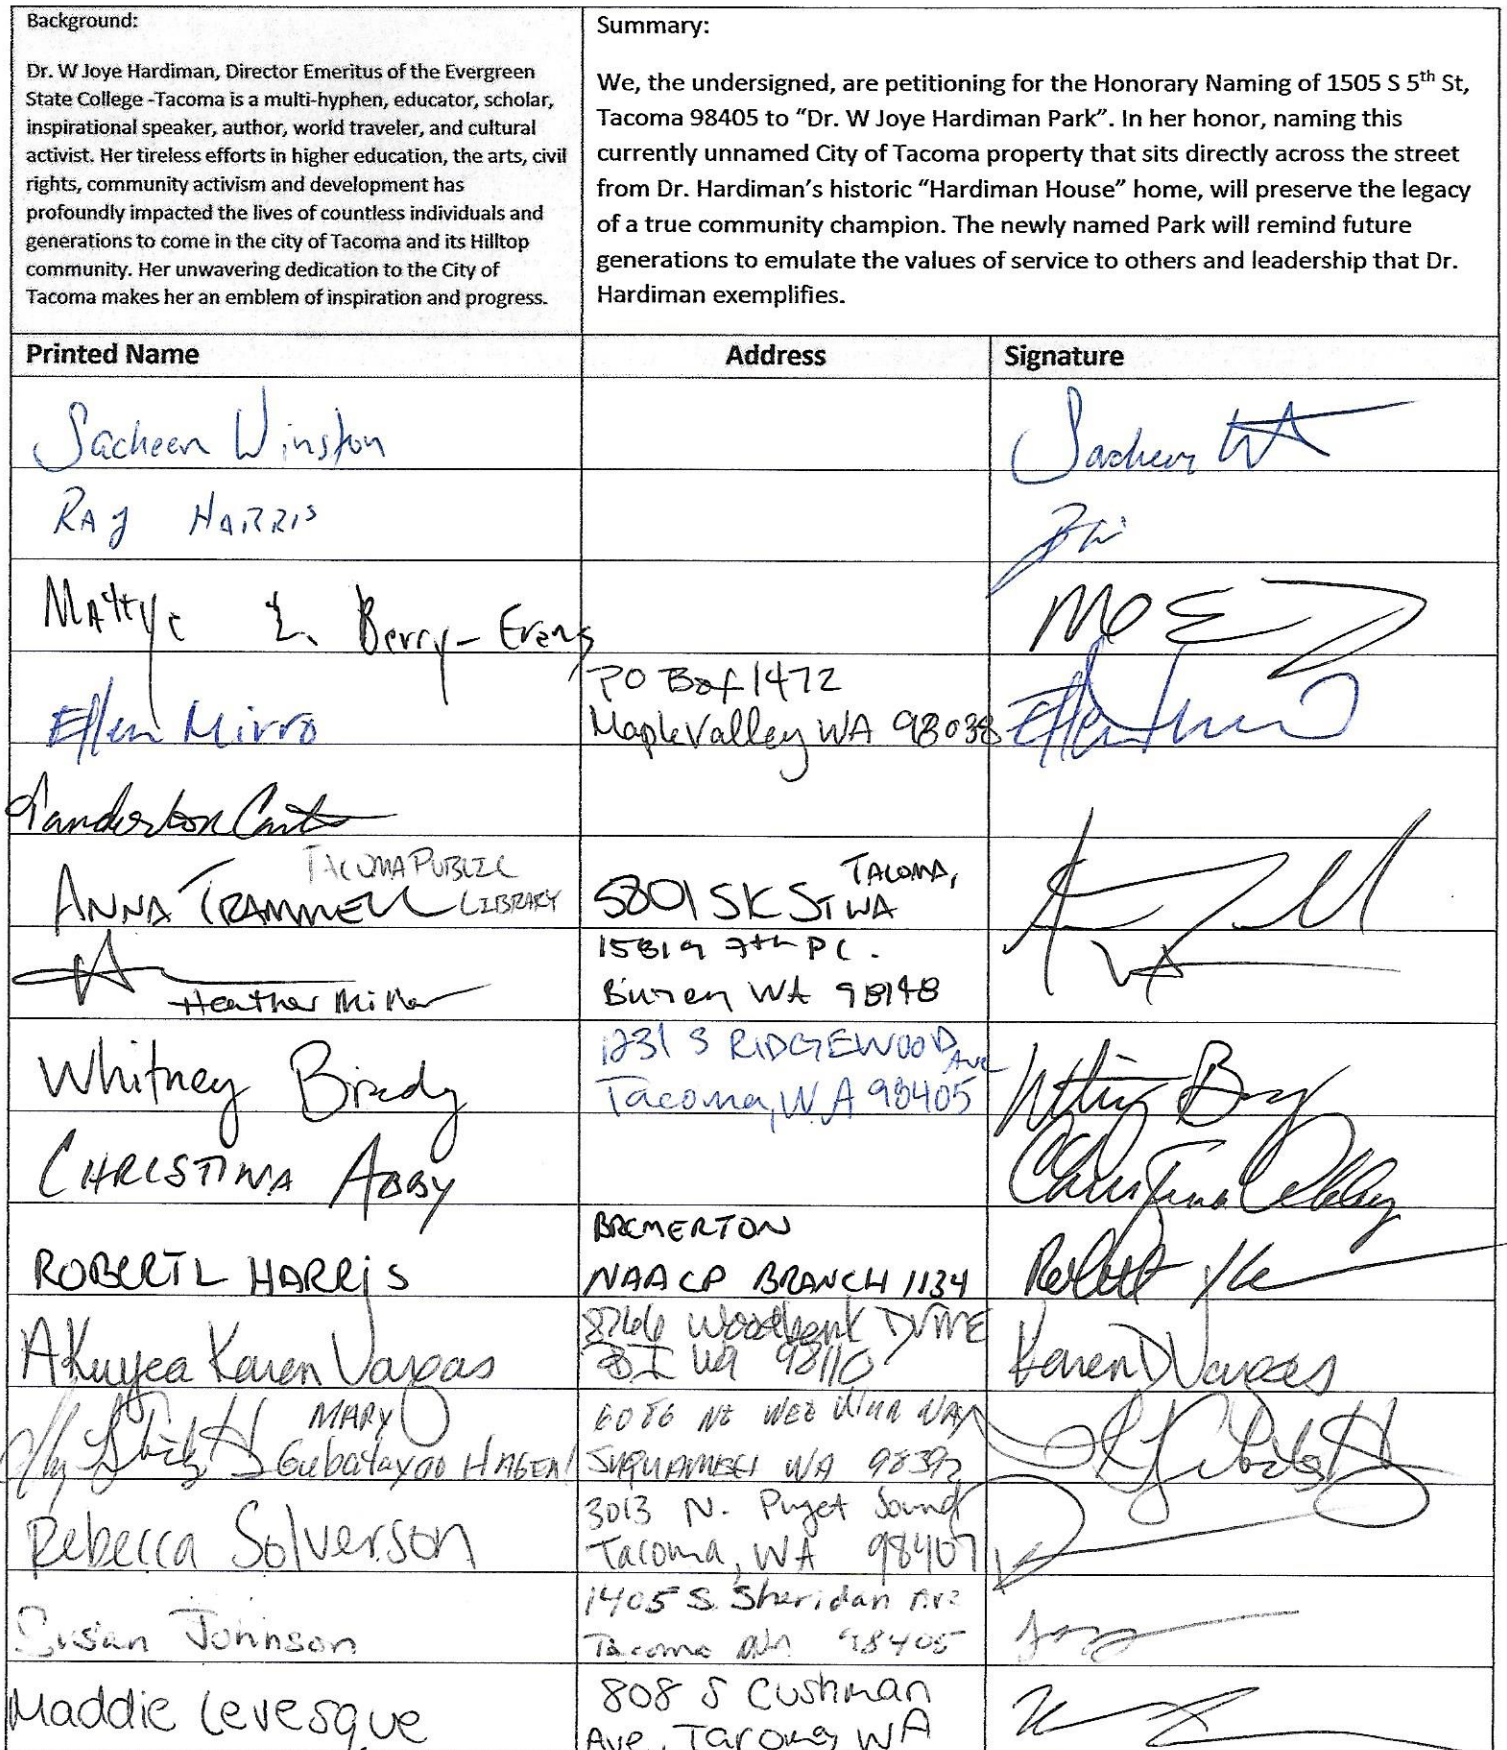 Background:
Dr. W Joye Hardiman, Director Emeritus of the Evergreen
State College -Tacoma is a multi-hyphen, educator, scholar,
inspirational speaker, author, world traveler, and cultural
activist. Her tireless efforts in higher education, the arts, civil
rights, community activism and development has
profoundly impacted the lives of countless individuals and
generations to come in the city of Tacoma and its Hilltop
community. Her unwavering dedication to the City of
Tacoma makes her an emblem of inspiration and progress.
Summary:
We, the undersigned, are petitioning for the Honorary Naming of 1505 S 5th St,
Tacoma 98405 to “Dr. W Joye Hardiman Park”. In her honor, naming this
currently unnamed City of Tacoma property that sits directly across the street
from Dr. Hardiman’s historic “Hardiman House” home, will preserve the legacy
of a true community champion. The newly named Park will remind future
generations to emulate the values of service to others and leadership that Dr.
Hardiman exemplifies.
Printed Name Address Signature
Sacheen Winston Sacheen
RAY HARRIS
Mattye E. Berry-Evans
PO Box 1472
Ellen Mirro Maple Valley WA 98038 Ellen Mirro
TACOMA PUBLIC TACOMA,
ANNA TRAMMELL LIBRARY 5801 S K ST WA
15819 7th Pl.
Heather Miller Burien WA 98148
1231 S RIDGEWOOD Ave
Whitney Brady Tacoma, WA 98405
CHRISTINA ABBY Christina Abby
BREMERTON
ROBERT L HARRIS NAACP BRANCH 1134 Robert
Woodbank DRIVE
Akuyea Karen Vargas BI WA 98110 Karen D Vargas
MARY 6086 NE WAY
Gubatayao HAGEN SUQUAMISH WA 98392
3013 N. Puget Sound
Rebecca Solverson Tacoma, WA 98407
1405 S. Sheridan Ave
Susan Johnson Tacoma WA 98405
808 S Cushman
Maddie Levesque Ave, Tacoma WA